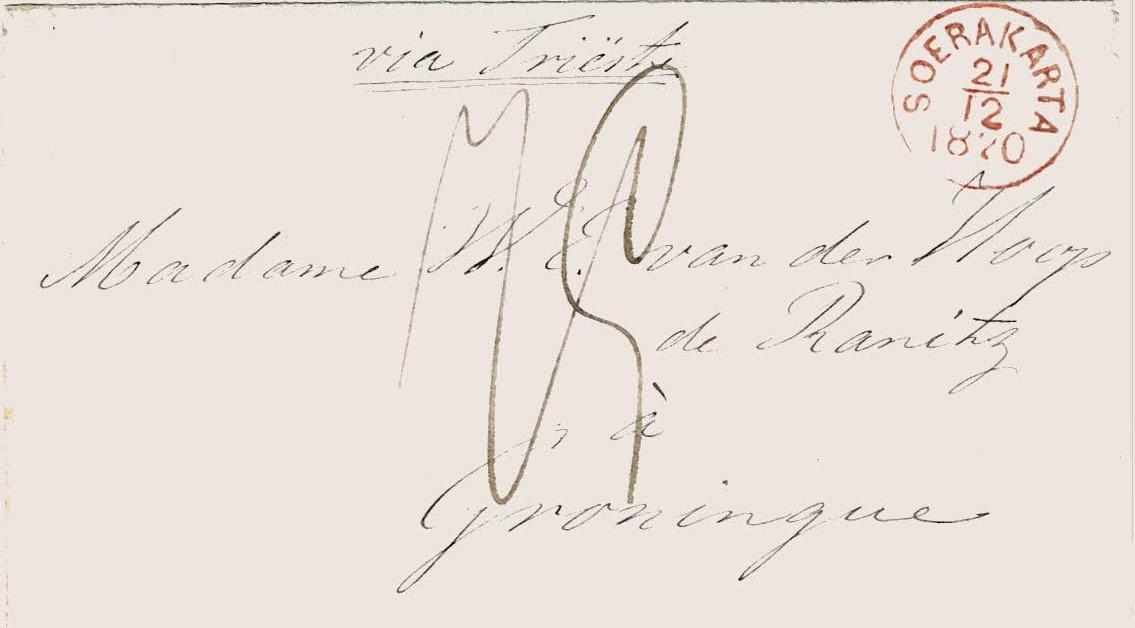 via Triëste
SOERAKARTA
21
12
1870
Madame W. E. van der Hoop
de Ranitz
à
Groningue